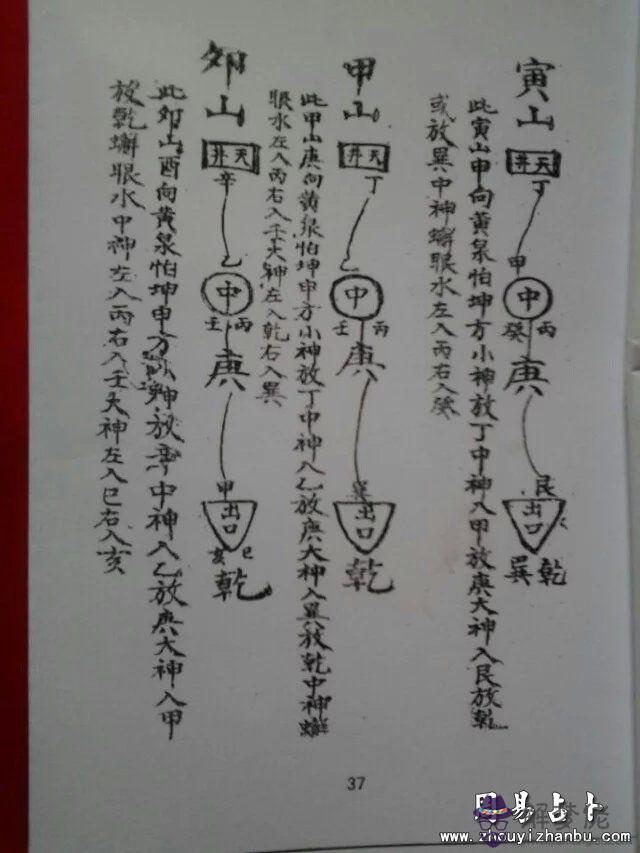 寅山
天井
丁
甲
中
癸 丙
庚
艮
出口
巽 乾
此寅山申向黄泉怕坤方小神放丁中神入甲放庚大神入艮放乾
或放巽中神蠏眼水左入丙右入癸
甲山
天井
丁
乙
中
壬 丙
庚
巽
出口
乾
此甲山庚向黄泉怕坤申方小神放丁中神入乙放庚大神入巽放乾中神蠏
眼水左入丙右入壬大神左入乾右入巽
卯山
天井
辛
乙
中
壬 丙
庚
甲
出口
亥 巳
乾
此卯山酉向黄泉怕坤申方小神放辛中神入乙放庚大神入甲
放乾蠏眼水中神左入丙右入壬大神左入巳右入亥
37
周易占卜
解梦佬
www.zhouyizhanbu.com